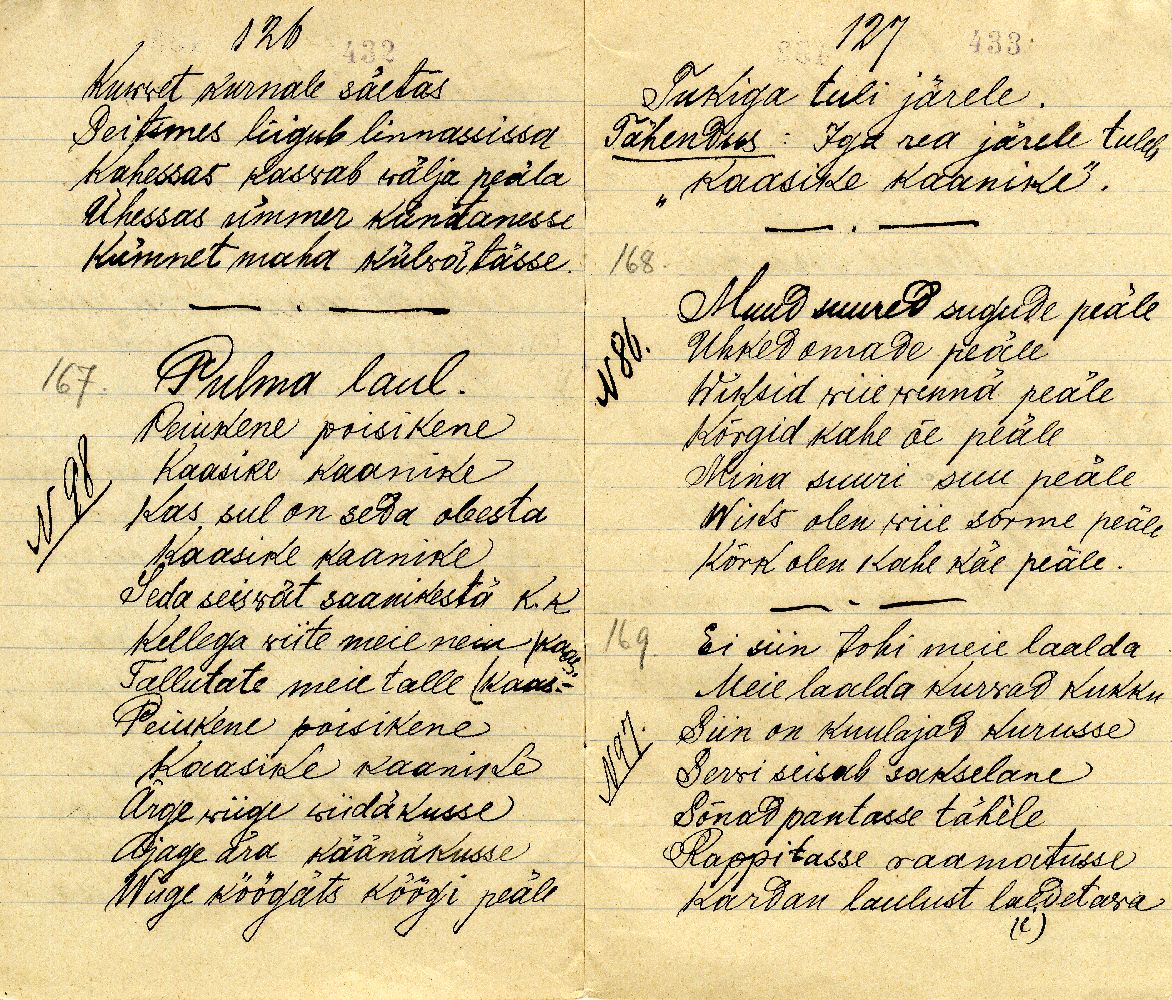 126
432
Kuwwet kurnale säetas
Seitsmes liigub linnassissa
Kahessas kaswab wälja peäla
Ühessas ümmer kündänesse
Kümnet maha külwätässe.
167.
Pulma laul.
N 98
Peiukene poisikene
Kaasike kaanike
Kas sul on seda obesta
Kaasike kaanike
Seda seiswät saanikestä k. k
Kellega wiite meie neiu (kaas.
Tallutate meie talle (kaas.-
Peiukene poisikene
Kaasike kaanike
Ärge wiige wiidäkusse
Ajage ära käänäkusse
Wiige köögäts köögi peäle
127
433
Tukiga tuli järele.
Tähendus : Iga rea järele tuleb
„Kaasike kaanike".
168.
N 86.
Muud suured sugude peäle
Uhked omade peäle
Wiksid wiie wennä peäle
Kõrgid kahe õe peäle
Mina suuri suu peäle
Wiks olen wiie sõrme peäle
Kõrk olen kahe käe peäle.
169
Ei siin tohi meie laalda
Meie laalda kurwad kukku
N 97.
Siin on kuulajad kurusse
Serwi seisab sakselane
Sõnad pantasse tähele
Rappitasse raamatusse
Kardan laulust laldetawa
(e)